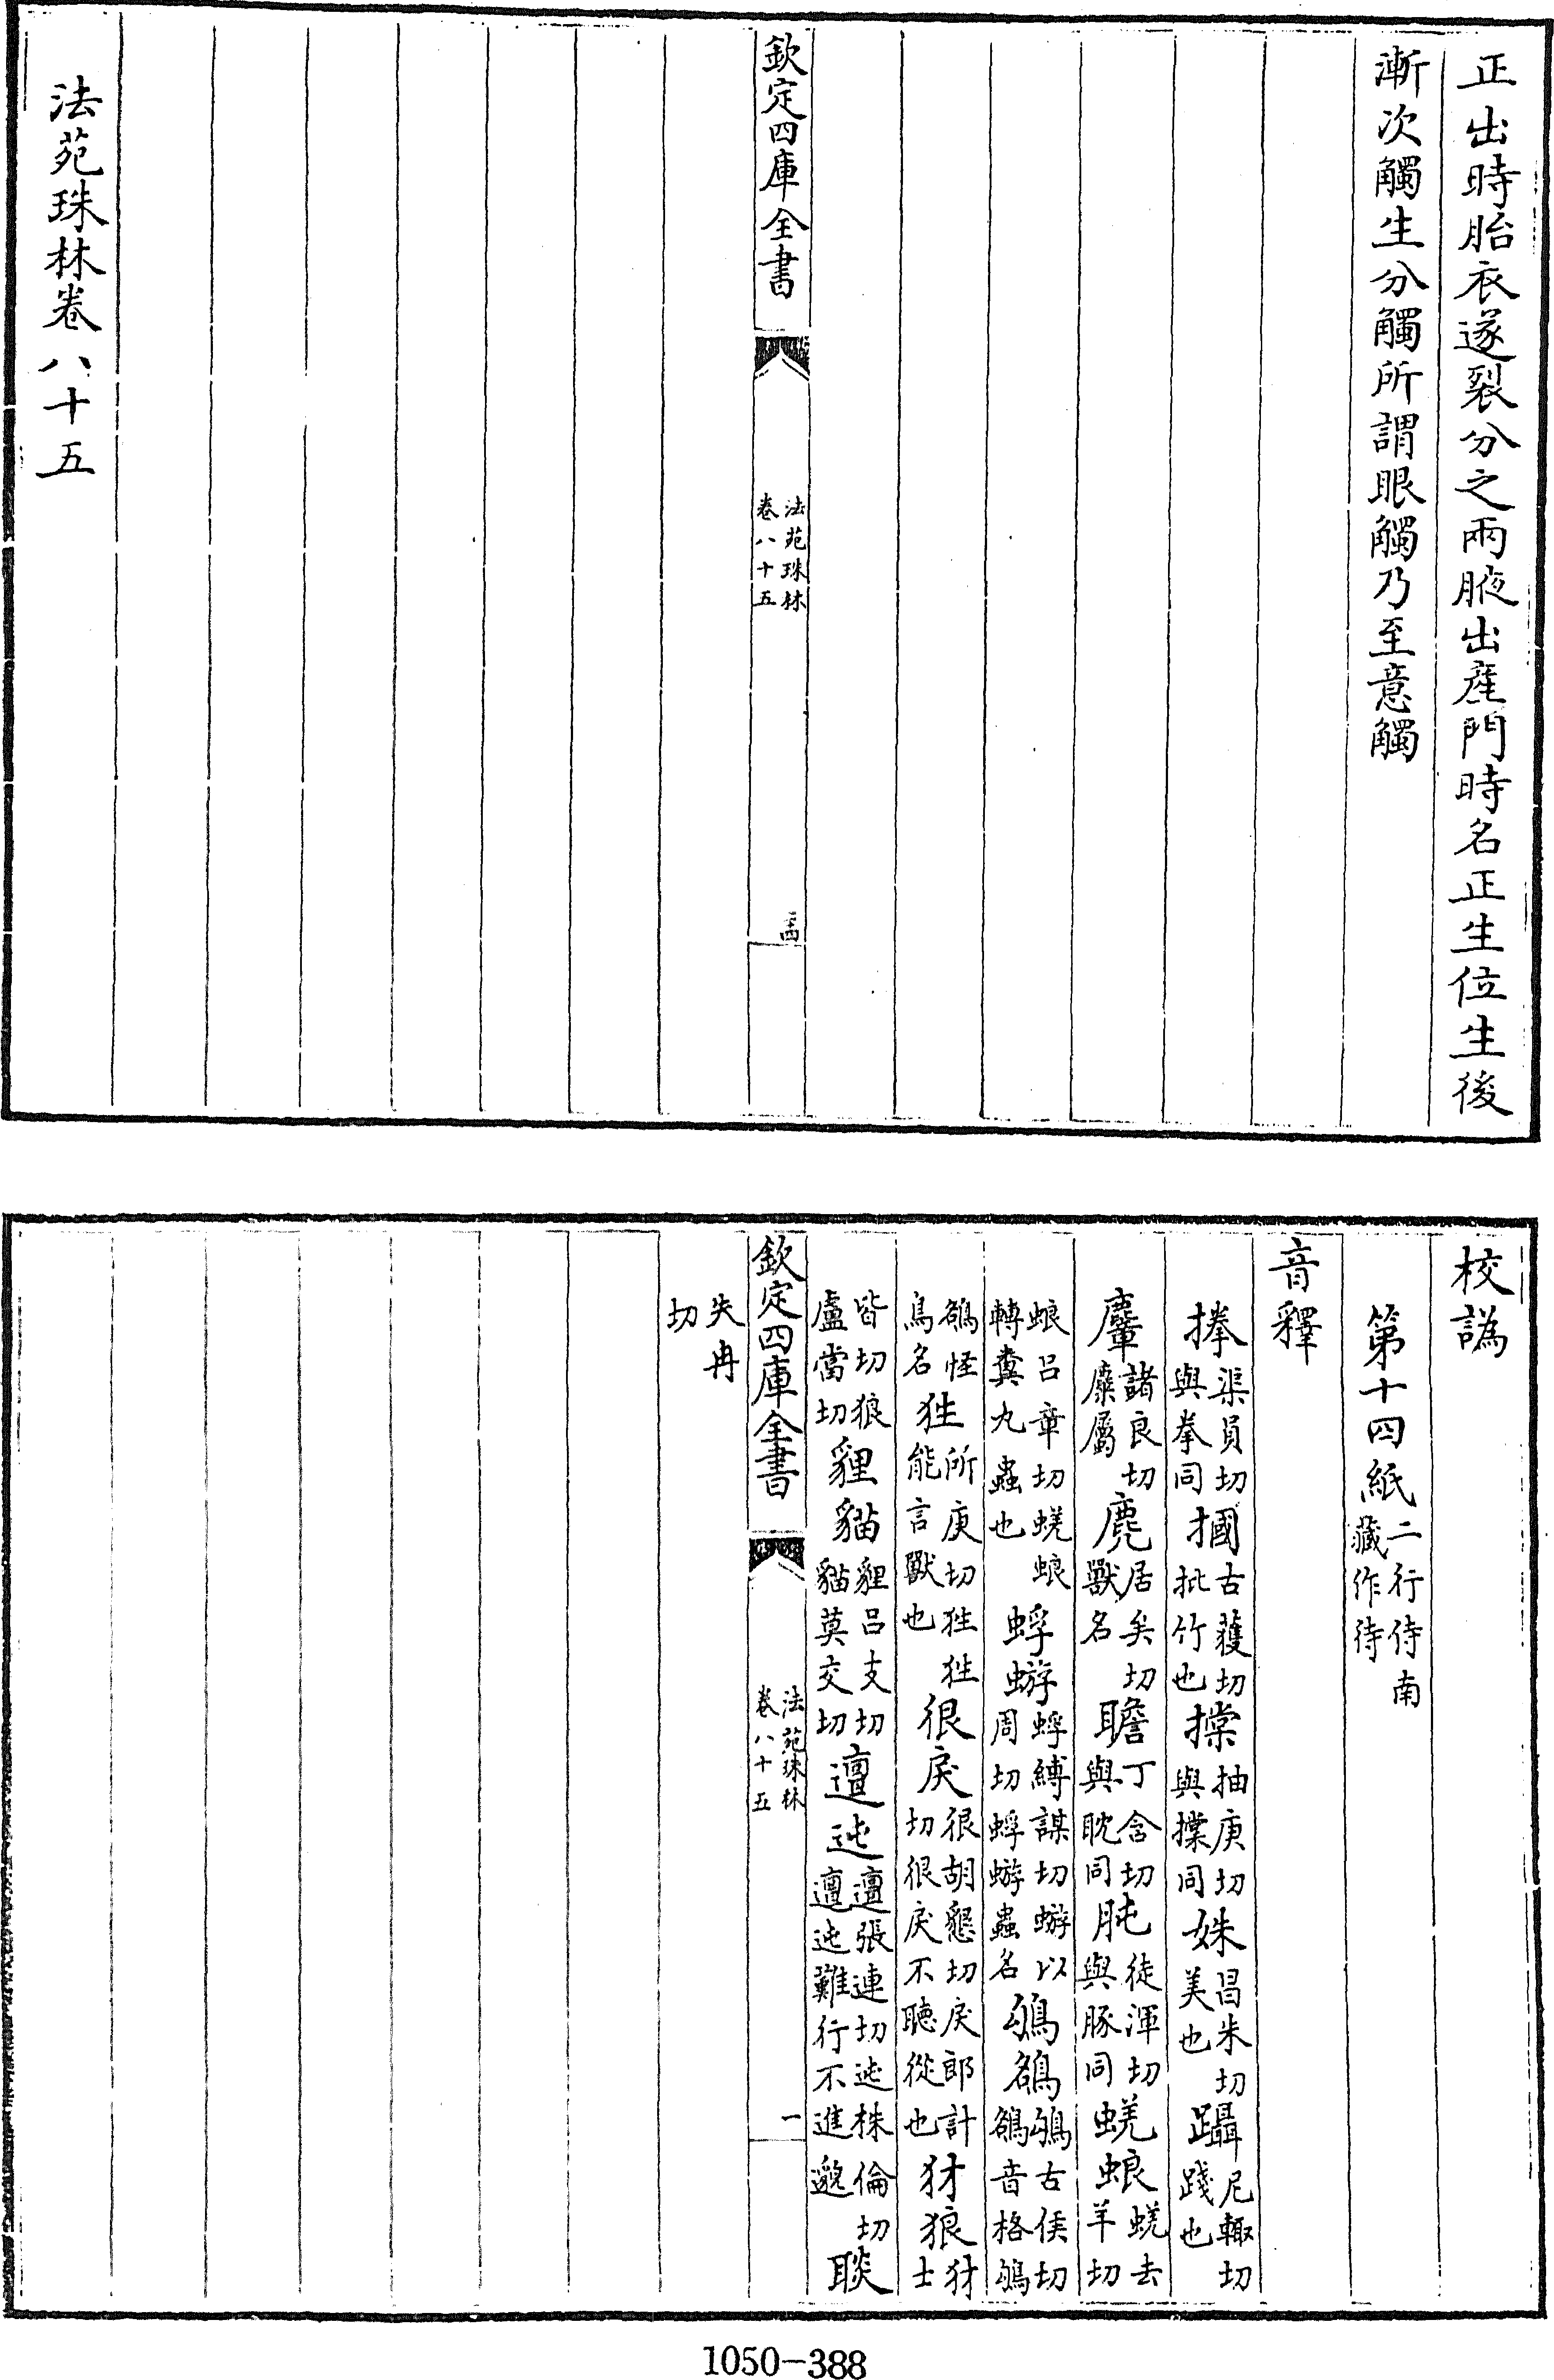 正出時胎衣遂裂分之兩腋出產門時名正生位生後
漸次觸生分觸所謂眼觸乃至意觸
欽定四庫全書
法苑珠林
卷八十五
法苑珠林卷八十五
校譌
第十四紙二行侍南藏作待
音釋
捲渠員切與拳同摑古獲切批竹也㨃抽庚切與㯑同姝昌朱切美也躡尼輙切踐也
麞諸良切麋屬麂居矣切獸名聸丁含切與耽同肫徒渾切與豚同蜣蜋蜣去羊切
蜋呂章切蜣蜋轉糞丸蟲也蜉蝣蜉縛謀切蝣以周切蜉蝣蟲名鴝鵅鴝古侯切鵅音格鴝
鵅怪鳥名狌所庚切狌狌能言獸也很戾很胡懇切戾郎計切很戾不聽從也犲狼犲士
皆切狼盧當切貍貓貍呂支切貓莫交切邅迍邅張連切迍株倫切邅迍難行不進邈聧
失冉切
欽定四庫全書
法苑珠林
卷八十五
一
1050-388